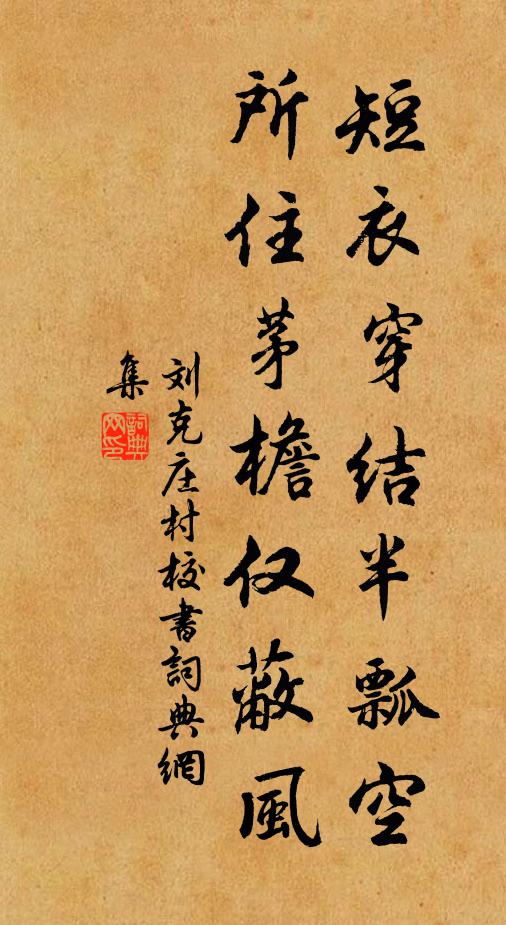 短衣穿结半瓢空
所住茅檐仅蔽風
刘克庄村校書詞典網
集
詞典网印